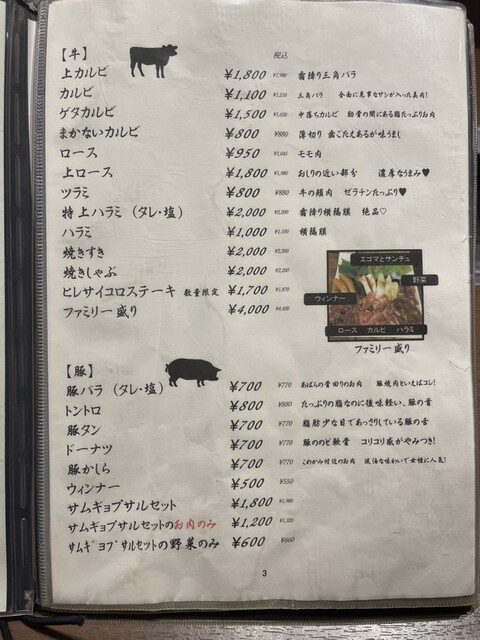 【牛】 税込
上カルビ ¥1,800 ¥1,980 霜降り三角バラ
カルビ ¥1,100 ¥1,210 三角バラ 全面に見事なサシが入った美肉!
ゲタカルビ ¥1,500 ¥1,650 中落ちカルビ 肋骨の間にある脂たっぷりお肉
まかないカルビ ¥800 ¥880 薄切り 歯ごたえあるが味うまし
ロース ¥950 ¥1,045 モモ肉
上ロース ¥1,800 ¥1,980 おしりの近い部分 濃厚なうまみ♥
ツラミ ¥800 ¥880 牛の頬肉 ゼラチンたっぷり♥
特上ハラミ（タレ・塩） ¥2,000 ¥2,200 霜降り横隔膜 絶品♡
ハラミ ¥1,000 ¥1,100 横隔膜
焼きすき ¥2,000 ¥2,200
焼きしゃぶ ¥2,000 ¥2,200
ヒレサイコロステーキ 数量限定 ¥1,700 ¥1,870
ファミリー盛り ¥4,000 ¥4,400
エゴマとサンチュ
野菜
ウィンナー
ロース カルビ ハラミ
ファミリー盛り
【豚】
豚バラ（タレ・塩） ¥700 ¥770 あばらの骨回りのお肉 豚焼肉といえばコレ!
トントロ ¥800 ¥880 たっぷりの脂なのに後味軽い、豚の首
豚タン ¥700 ¥770 脂肪少な目であっさりしている豚の舌
ドーナツ ¥700 ¥770 豚ののど軟骨 コリコリ感がやみつき!
豚かしら ¥700 ¥770 こめかみ付近のお肉 淡泊な味わいで女性に人気!
ウィンナー ¥500 ¥550
サムギョプサルセット ¥1,800 ¥1,980
サムギョプサルセットのお肉のみ ¥1,200 ¥1,320
サムギョプサルセットの野菜のみ ¥600 ¥660
3